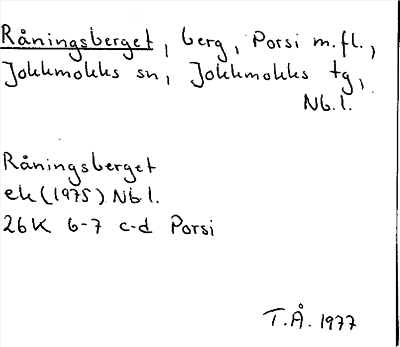 Råningsberget, berg, Porsi m.fl.,
Jokkmokks sn, Jokkmokks tg,
Nb.l.
Råningsberget
ek (1975) Nbl.
26K 6-7 c-d Porsi
T.Å. 1977